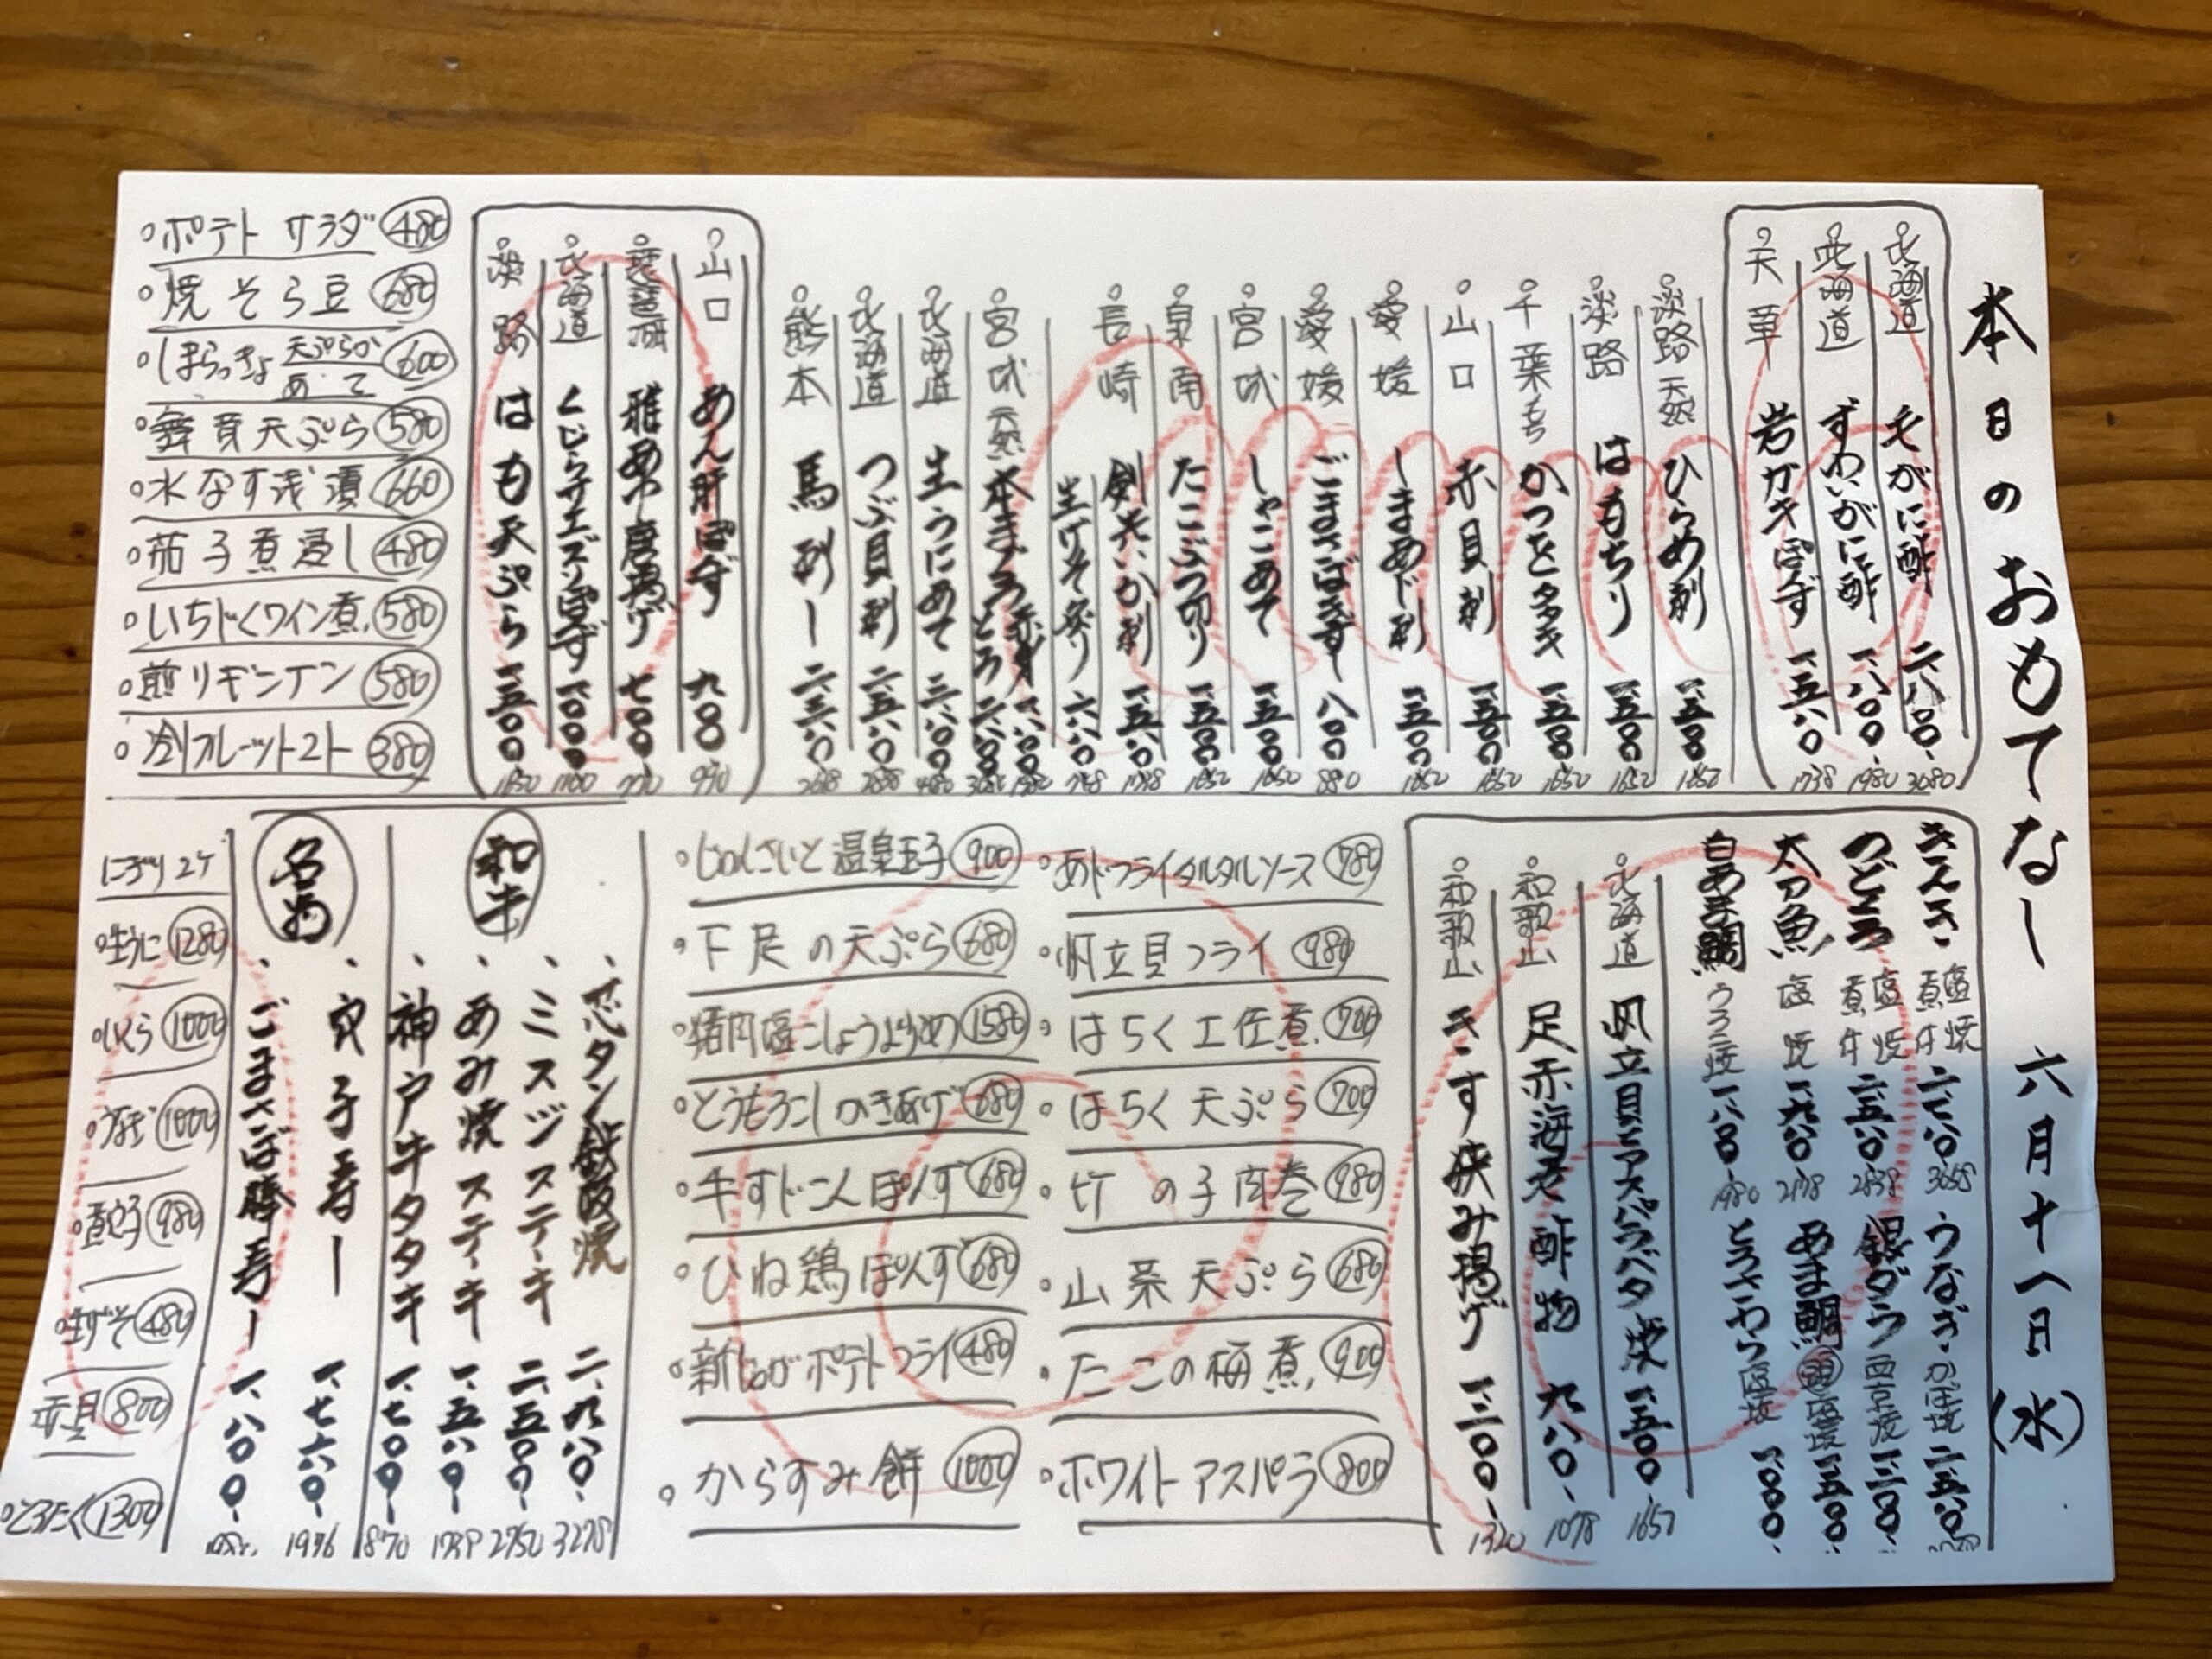 本日のおもてなし 六月十八日(水)
北海道 毛がに酢 二、八〇〇 3080
北海道 ずわいがに酢 一、八〇〇 1980
天草 岩ガキぽず 一、五八〇 1738
淡路 天然 ひらめ刺 一、五〇〇 1650
淡路 はもちり 一、五〇〇 1650
千葉 もち かつをタタキ 一、五〇〇 1650
山口 赤貝刺 一、五〇〇 1650
愛媛 しまあじ刺 一、五〇〇 1650
愛媛 ごまさばきずし 八〇〇 880
宮城 しゃこあて 一、五〇〇 1650
泉南 たこぶつ切り 一、五〇〇 1650
長崎 剣先いか刺 一、五八〇 1738
生げそ炙り 六八〇 748
宮城 天然 本まぐろ 赤身 一、八〇〇 1980
とろ 二、八〇〇 3080
北海道 生うにあて
北海道 つぶ貝刺 二、五八〇 2838
熊本 馬刺し
山口 あん肝ぽず 九〇〇 990
琵琶湖 稚あゆ唐揚げ 七〇〇 770
北海道 くじらサエズリぽず 一、〇〇〇 1100
淡路 はも天ぷら 一、五〇〇 1650
ポテトサラダ 480
焼そら豆 680
しまらっきょ 天ぷらか あて 600
舞茸天ぷら 580
水なす浅漬 660
茄子煮浸し 480
いちじくワイン煮 580
煎りギンナン 580
冷フルーツトマト 380
きんき 塩焼 煮付
のどぐろ 塩焼 煮付 二、五八〇 2838
太刀魚 塩焼 一、九八〇 2178
白あま鯛 うろこ焼 一、八〇〇 1980
うなぎ かば焼 二、五八〇
銀ダラ 西京焼
あま鯛 塩焼 一、五〇〇
とろさわら 塩焼 一、〇〇〇
北海道 帆立貝とアスパラバター焼 一、五〇〇 1650
和歌山 足赤海老酢物 九八〇 1078
和歌山 きす挟み揚げ 一、二〇〇 1320
あじフライタルタルソース 780
帆立貝フライ 980
はちく土佐煮 700
はちく天ぷら 700
竹の子肉巻 980
山菜天ぷら 680
たこの梅煮 900
ホワイトアスパラ 800
じゅんさいと温泉玉子 900
下足の天ぷら 680
猪肉塩こしょう炒め 1580
とうもろこしかきあげ 680
牛すじこんぽんず 680
ひね鶏ぽんず 680
新じゃがポテトフライ 480
からすみ餅 1080
和牛
芯タン鉄板焼 二、九八〇 3278
ミスジステーキ 二、五〇〇 2750
あみ焼ステーキ 一、五八〇 1738
神戸牛タタキ 一、七〇〇 1870
名物
穴子寿し 一、七六〇 1936
ごまさば棒寿し 一、八〇〇
にぎり2ケ
生うに 1280
いくら 1000
うなぎ 1000
煮穴子 980
生げそ 480
赤貝 800
とろたく 1300